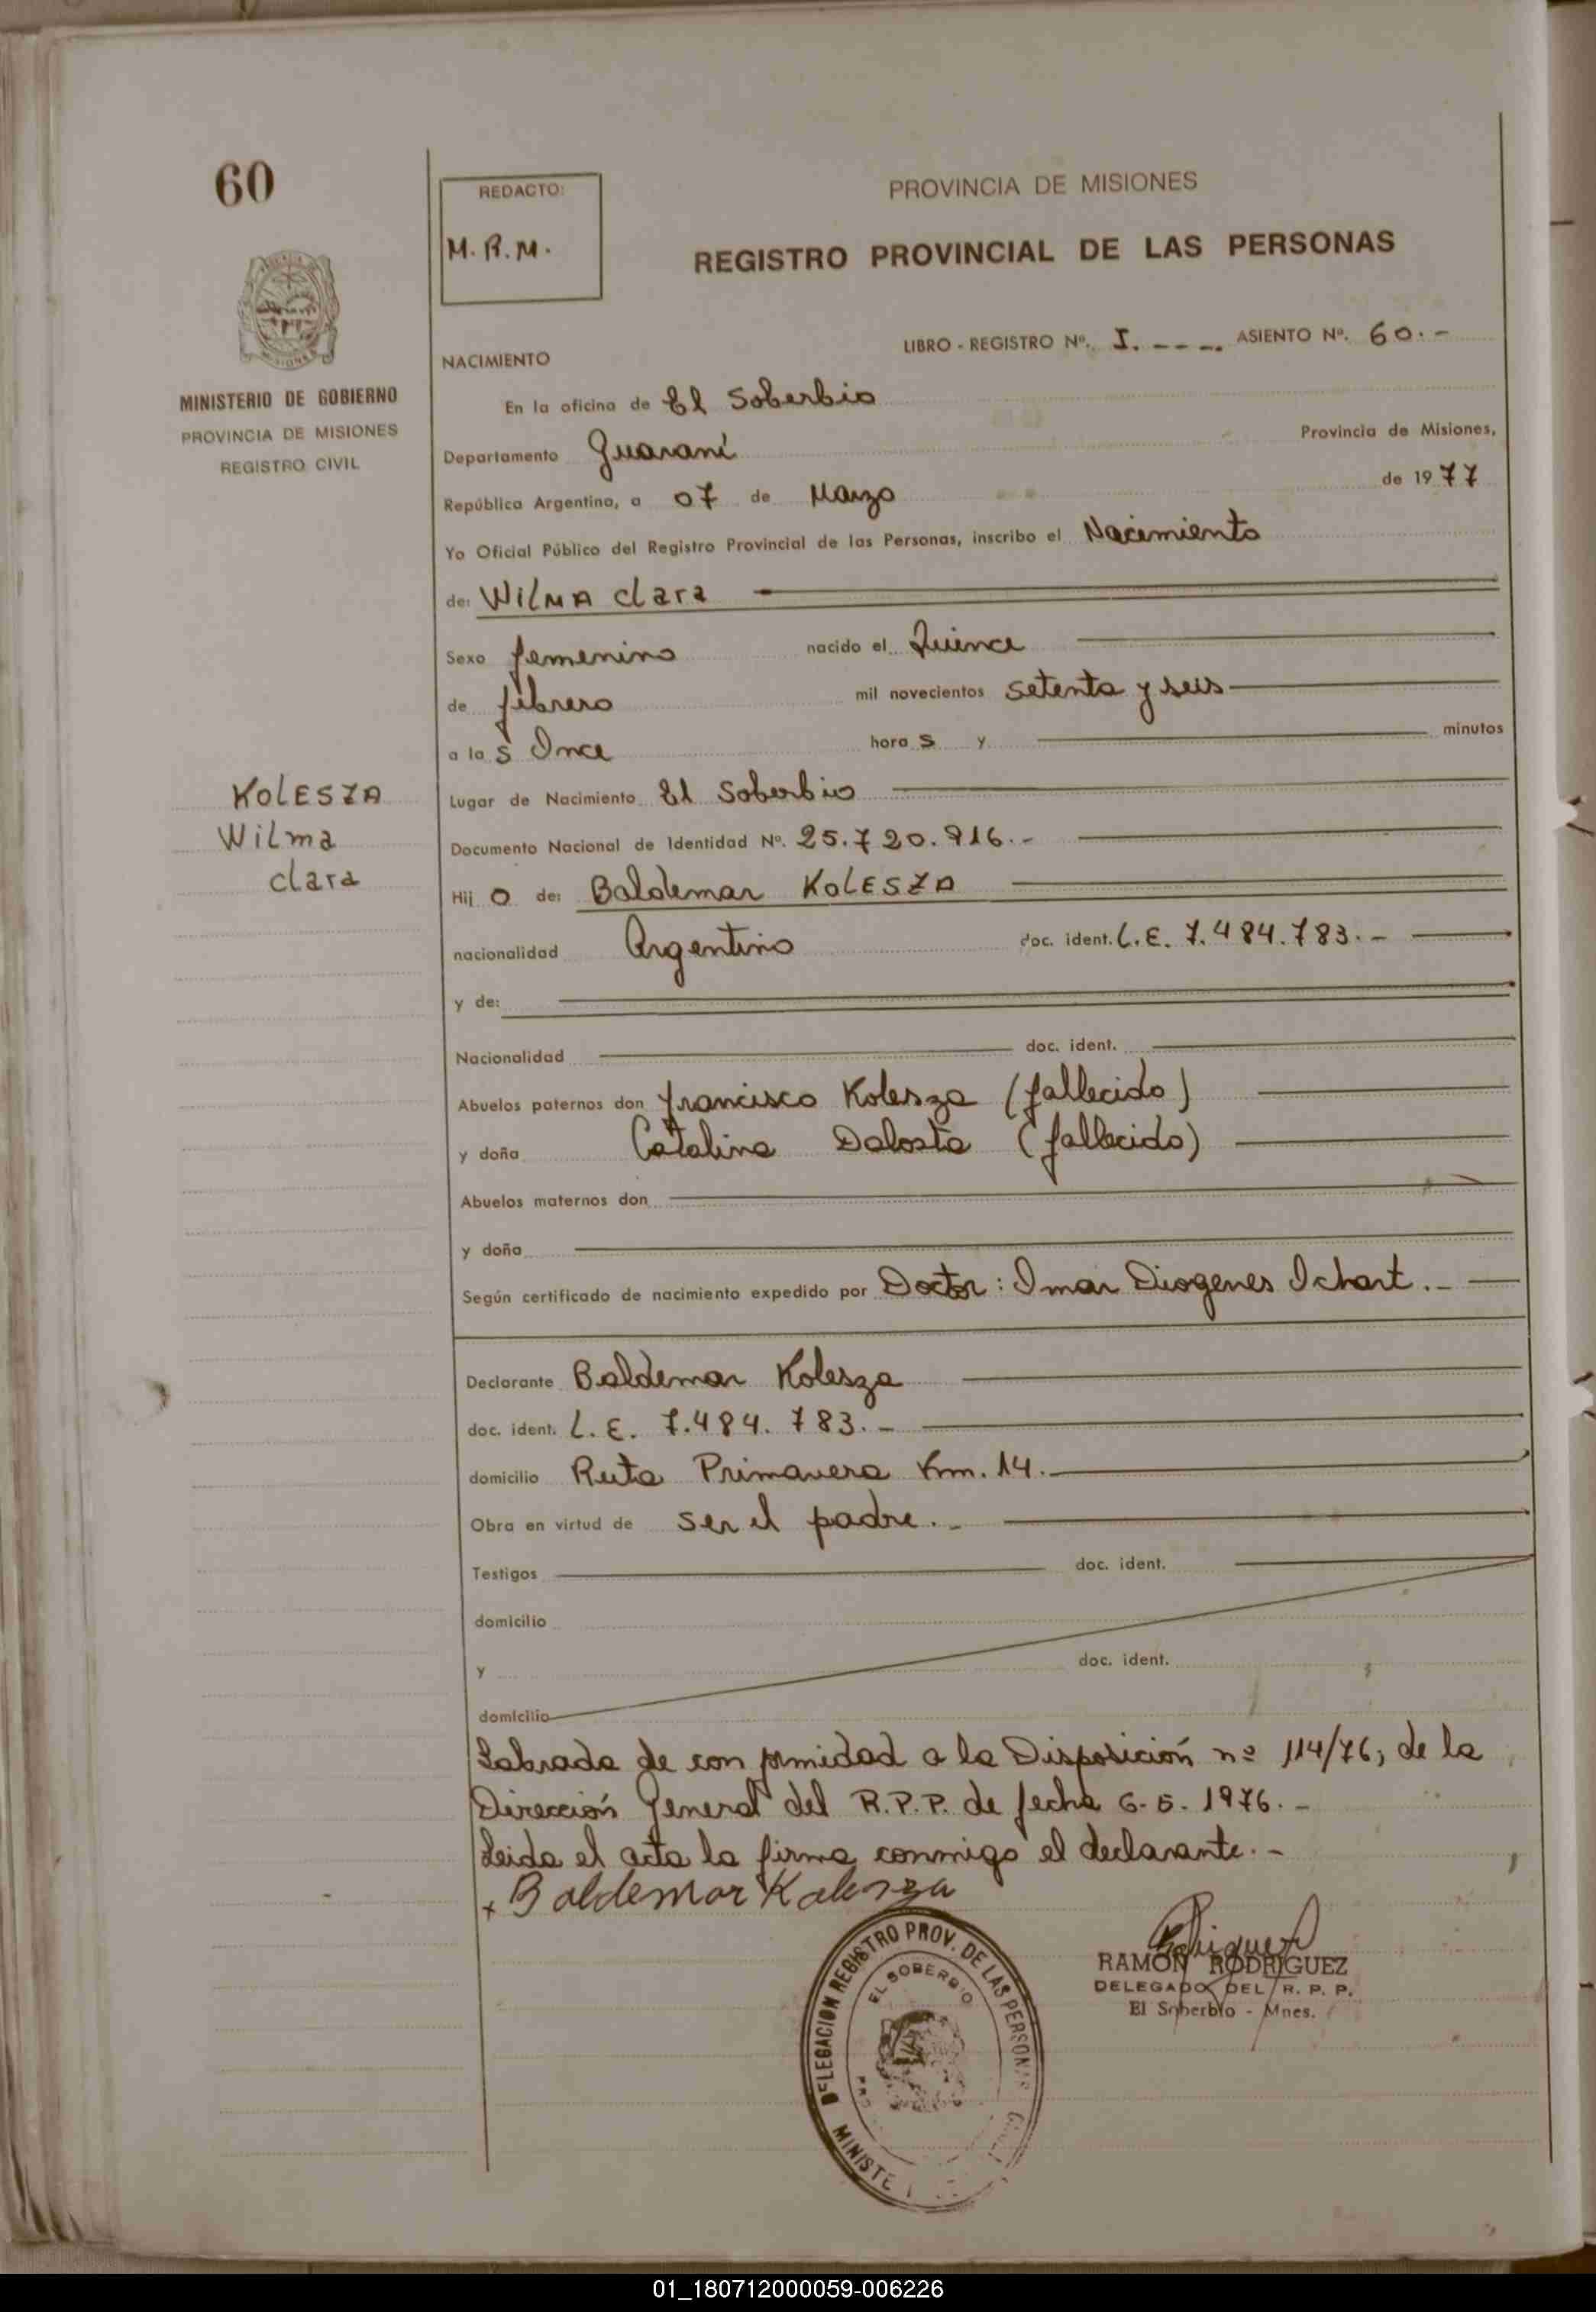 60
REDACTO:
M.R.M.
PROVINCIA DE MISIONES
REGISTRO PROVINCIAL DE LAS PERSONAS
MINISTERIO DE GOBIERNO
PROVINCIA DE MISIONES
REGISTRO CIVIL
LIBRO - REGISTRO Nº. I. ASIENTO Nº. 60.-
NACIMIENTO
En la oficina de El Soberbio
Departamento Guaraní Provincia de Misiones,
República Argentina, a 07 de Marzo de 1977
Yo Oficial Público del Registro Provincial de las Personas, inscribo el Nacimiento
de: WilMA clara
Sexo femenino nacido el Quince
de febrero mil novecientos setenta y seis
a las Once horas y minutos
KOLESZA
Wilma
clara
Lugar de Nacimiento El Soberbio
Documento Nacional de Identidad Nº. 25.720.916.-
Hijo de: Baldemar KOLESZA
nacionalidad Argentino doc. ident. L.E. 7.484.783.-
y de:
Nacionalidad doc. ident.
Abuelos paternos don francisco Kolesza (fallecido)
y doña Catalina Dalosta (fallecido)
Abuelos maternos don
y doña
Según certificado de nacimiento expedido por Doctor: Omar Diogenes Ichart.-
Declarante Baldemar Kolesza
doc. ident. L.E. 7.484.783.-
domicilio Ruta Primavera Km. 14.
Obra en virtud de ser el padre.-
Testigos doc. ident.
domicilio
y doc. ident.
domicilio
Labrada de conformidad a la Disposición nº 114/76, de la
Dirección General del R.P.P. de fecha 6.5.1976.-
Leida el acta la firma conmigo el declarante.-
x Baldemar Kolesza
Rodriguez
RAMON RODRIGUEZ
DELEGADO DEL R. P. P.
El Soberbio - Mnes.
DELEGACION REGISTRO PROV. DE LAS PERSONAS
EL SOBERBIO
01_180712000059-006226